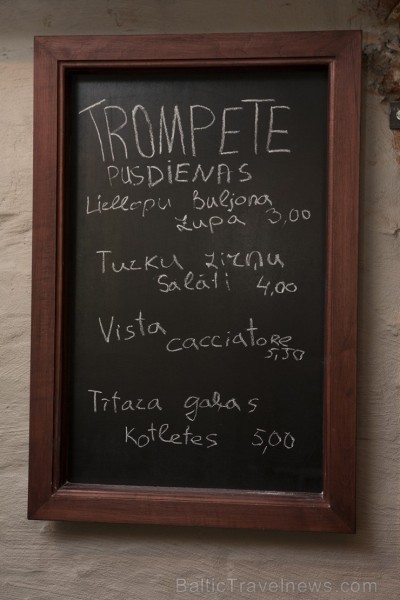 TROMPETE
PUSDIENAS
Liellopu Buljona
zupa 3,00
Tuzku zirņu
Salāti 4,00
Vista
cacciatore
5,50
Tītaza gaļas
Kotletes 5,00
BalticTravelnews.com